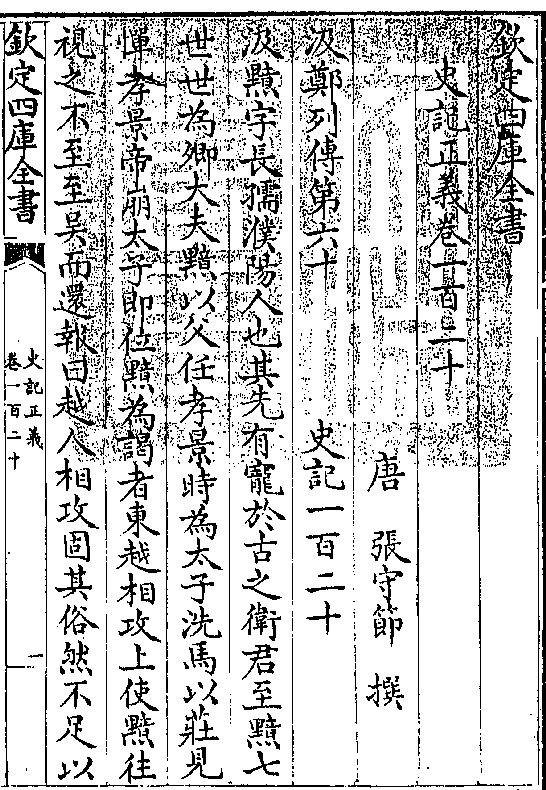 欽定四庫全書
史記正義卷一百二十
唐 張守節 撰
汲鄭列傳第六十 史記一百二十
汲黯字長孺濮陽人也其先有寵於古之衛君至黯七
世世為卿大夫黯以父任孝景時為太子洗馬以莊見
憚孝景帝崩太子即位黯為謁者東越相攻上使黯往
視之不至至吳而還報曰越人相攻固其俗然不足以
欽定四庫全書
史記正義
卷一百二十
一